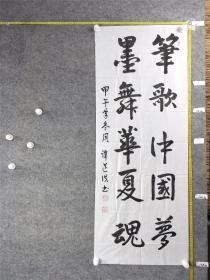 筆歌中國夢
墨舞華夏魂
甲午年冬月